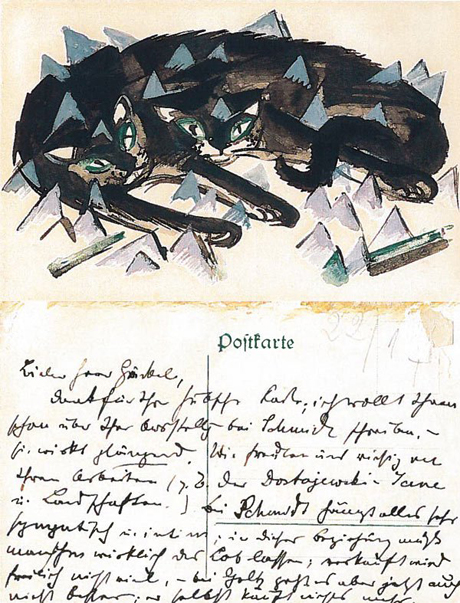 Postkarte
22/1
Lieber Herr
Dank für Ihre hübsche Karte; ich wollt Ihnen
schon über Ihre Ausstellg bei Schmidt schreiben, –
sie wirkt glänzend. Wir freuten uns riesig an
Ihren Arbeiten (z.B. der Dostojewski-Scene
u. Landschaften.) bei Schmidt hängt alles sehr
sympatisch u. intim; in dieser Beziehung muß
wirklich das Lob lassen; verkauft wird
freilich nicht viel, – bei Goltz geht es aber jetzt auch
nicht besser; er selbst kauft nichts mehr.